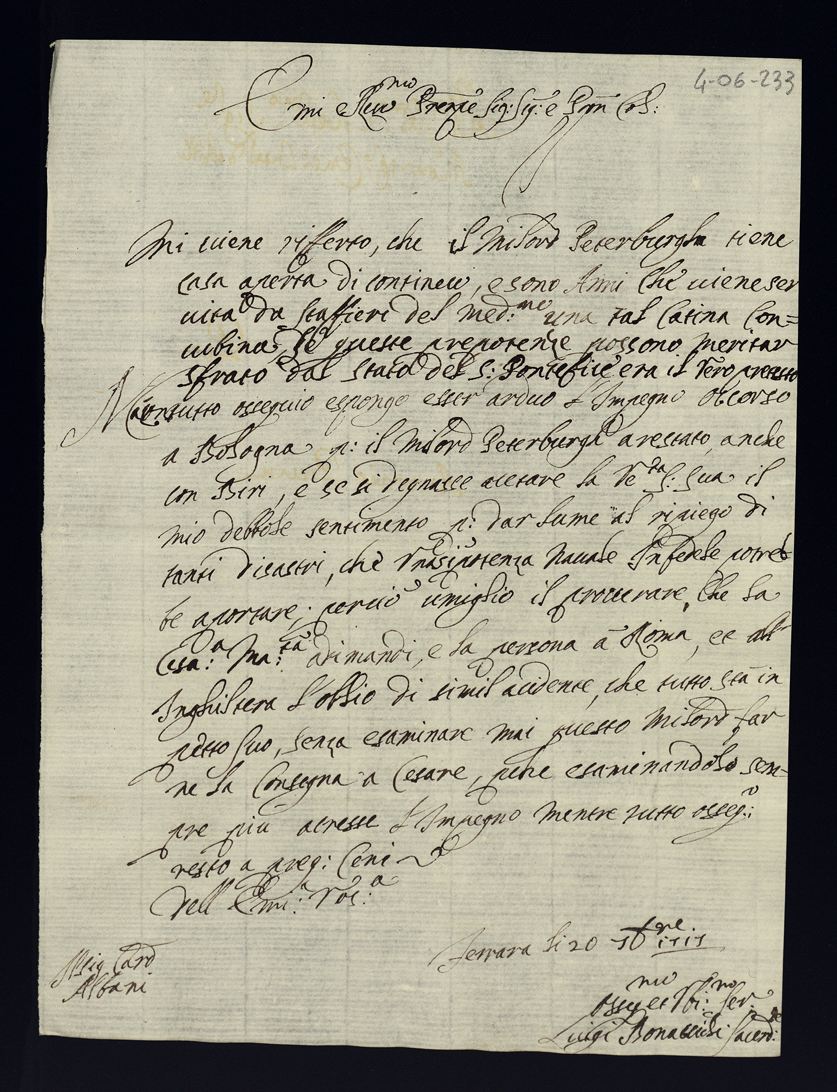 4-06-233
Emi e Rev.mo Preñe Sig: Sig:
Mi viene rifferto, che il Milord Peterburgh tiene
casa aperta di continuo, e sono Anni che viene ser
vita da staffieri del Med:mo una tal Catina Con=
cubina, se queste prepotenze possono meritar
sfrato dal Stato del S: Pontefice era il Vero pretesto
tutto ossequio espongo esser arduo l'Impegno occorso
a Bologna p: il Milord Peterburgh arestato anche
con Biri, e se si degnasse acetare la S: Sua il
mio debbole sentimento p: dar lume al ripiego di
tanti disastri, che potenza Navale Infedele potreb
be aportare, perciò umiglio il procurare, che la
Cesa:a Ma:tà adimandi, e la persona à Roma, et all'
Inghiltera l'oblio di simil acidente, che tutto stà in
petto suo, senza esaminare mai questo Milord, far
ne la Consegna a Cesare, perche esaminandolo sem-
pre più acresse l'Impegno mentre tutto osseq:o
resto a preg: Ceni
Dell Emi:a Vos:a
Ferrara li 20
Sig Card
Albani
Osseq et Obl: Ser:
Luigi Bonacciosi Sacerd: